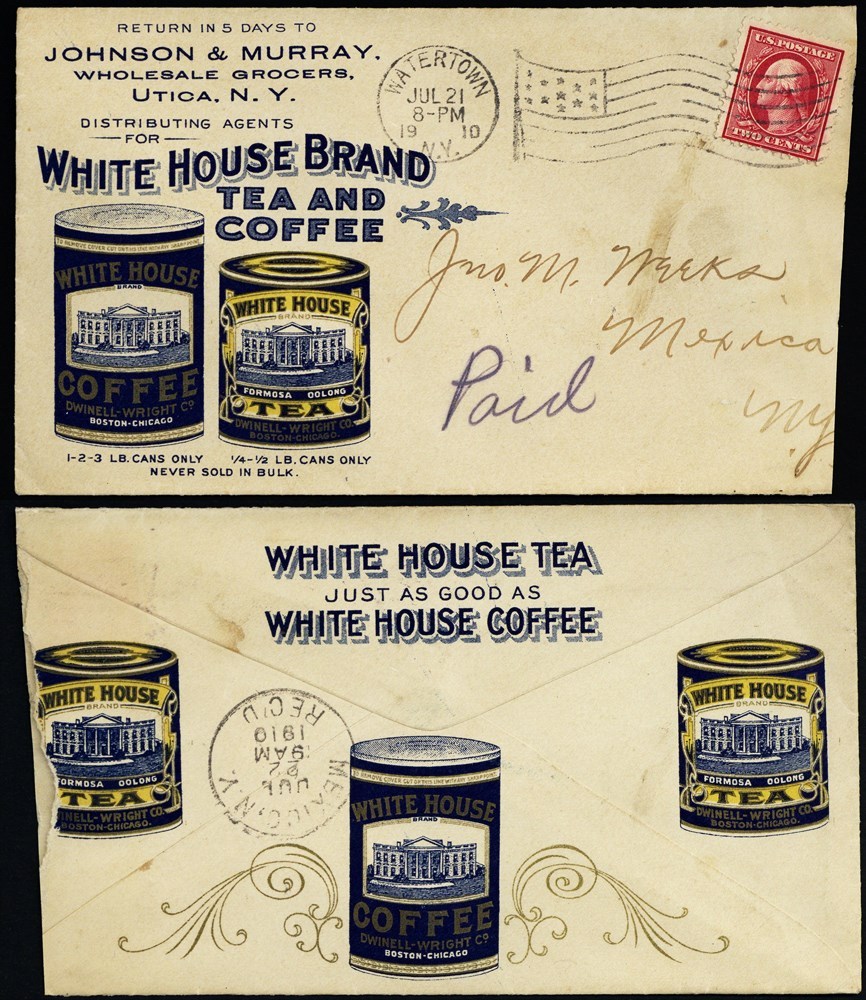 RETURN IN 5 DAYS TO
JOHNSON & MURRAY,
WHOLESALE GROCERS,
UTICA, N. Y.
DISTRIBUTING AGENTS
FOR
WHITE HOUSE BRAND
TEA AND
COFFEE
WATERTOWN
JUL 21
8-PM
19 10
N.Y.
U.S. POSTAGE
TWO CENTS
TO REMOVE COVER CUT ON THIS LINE WITH ANY SHARP POINT
WHITE HOUSE
BRAND
COFFEE
DWINELL-WRIGHT CO
BOSTON-CHICAGO
WHITE HOUSE
BRAND
FORMOSA OOLONG
TEA
DWINELL-WRIGHT CO.
BOSTON-CHICAGO.
1-2-3 LB. CANS ONLY 1/4-1/2 LB. CANS ONLY
NEVER SOLD IN BULK.
Jno. M. Weeks
Mexico
NY
Paid
WHITE HOUSE TEA
JUST AS GOOD AS
WHITE HOUSE COFFEE
WHITE HOUSE
BRAND
FORMOSA OOLONG
TEA
WINELL-WRIGHT CO.
BOSTON-CHICAGO.
MEXICO, N.Y.
JUL
22
9AM
1910
REC'D
TO REMOVE COVER CUT ON THIS LINE WITH ANY SHARP POINT
WHITE HOUSE
BRAND
COFFEE
DWINELL-WRIGHT CO
BOSTON-CHICAGO
WHITE HOUSE
BRAND
FORMOSA OOLONG
TEA
DWINELL-WRIGHT CO.
BOSTON-CHICAGO.